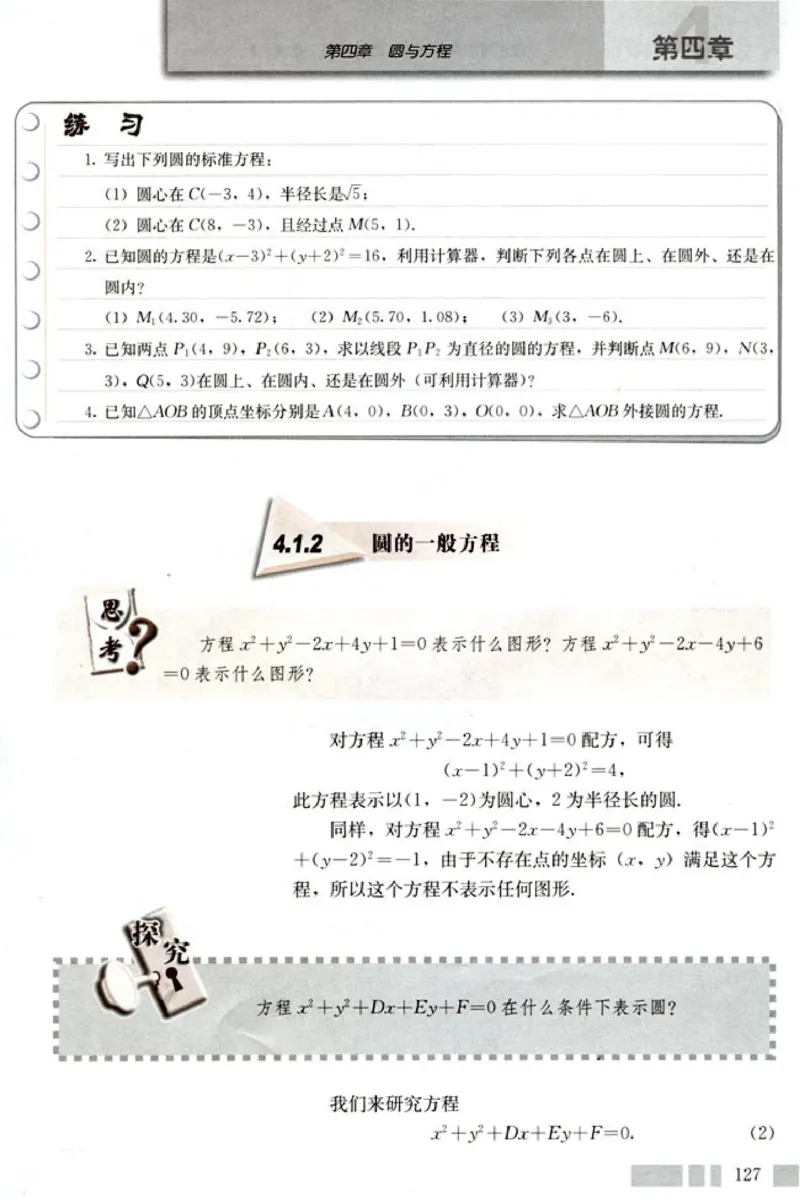 第四章 圆与方程
第四章
练 习
1. 写出下列圆的标准方程：
(1) 圆心在 C(−3，4)，半径长是√5；
(2) 圆心在 C(8，−3)，且经过点 M(5，1).
2. 已知圆的方程是(x−3)²+(y+2)²=16，利用计算器，判断下列各点在圆上、在圆外、还是在
圆内？
(1) M₁(4.30，−5.72)； (2) M₂(5.70，1.08)； (3) M₃(3，−6).
3. 已知两点 P₁(4，9)，P₂(6，3)，求以线段 P₁P₂ 为直径的圆的方程，并判断点 M(6，9)，N(3，
3)，Q(5，3)在圆上、在圆内、还是在圆外（可利用计算器）？
4. 已知△AOB 的顶点坐标分别是 A(4，0)，B(0，3)，O(0，0)，求△AOB 外接圆的方程.
4.1.2 圆的一般方程
思考？
方程 x²+y²−2x+4y+1=0 表示什么图形？方程 x²+y²−2x−4y+6
=0 表示什么图形？
对方程 x²+y²−2x+4y+1=0 配方，可得
(x−1)²+(y+2)²=4，
此方程表示以(1，−2)为圆心，2 为半径长的圆.
同样，对方程 x²+y²−2x−4y+6=0 配方，得(x−1)²
+(y−2)²=−1，由于不存在点的坐标（x，y）满足这个方
程，所以这个方程不表示任何图形.
探究
方程 x²+y²+Dx+Ey+F=0 在什么条件下表示圆？
我们来研究方程
x²+y²+Dx+Ey+F=0. (2)
127